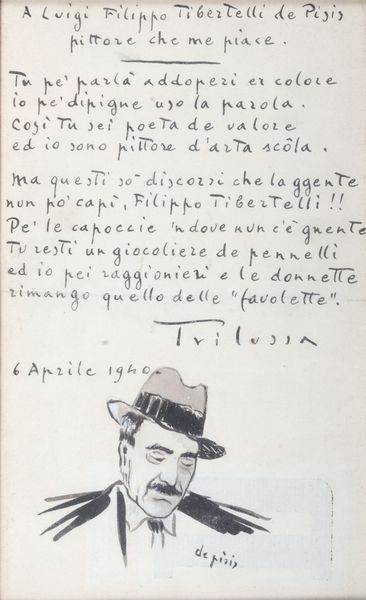 A Luigi Filippo Tibertelli de Pisis
pittore che me piace.
Tu pe' parlà addoperi er colore
io pe' dipigne uso la parola.
Così tu sei poeta de valore
ed io sono pittore d'arta scôla.
Ma questi so' discorsi che la ggente
nun pò capì, Filippo Tibertelli!!
Pe' le capoccie 'ndove nun c'è gnente
Tu resti un giocoliere de pennelli
ed io pei raggionieri e le donnette
rimango quello delle "favolette".
Trilussa
6 Aprile 1940
de pisis